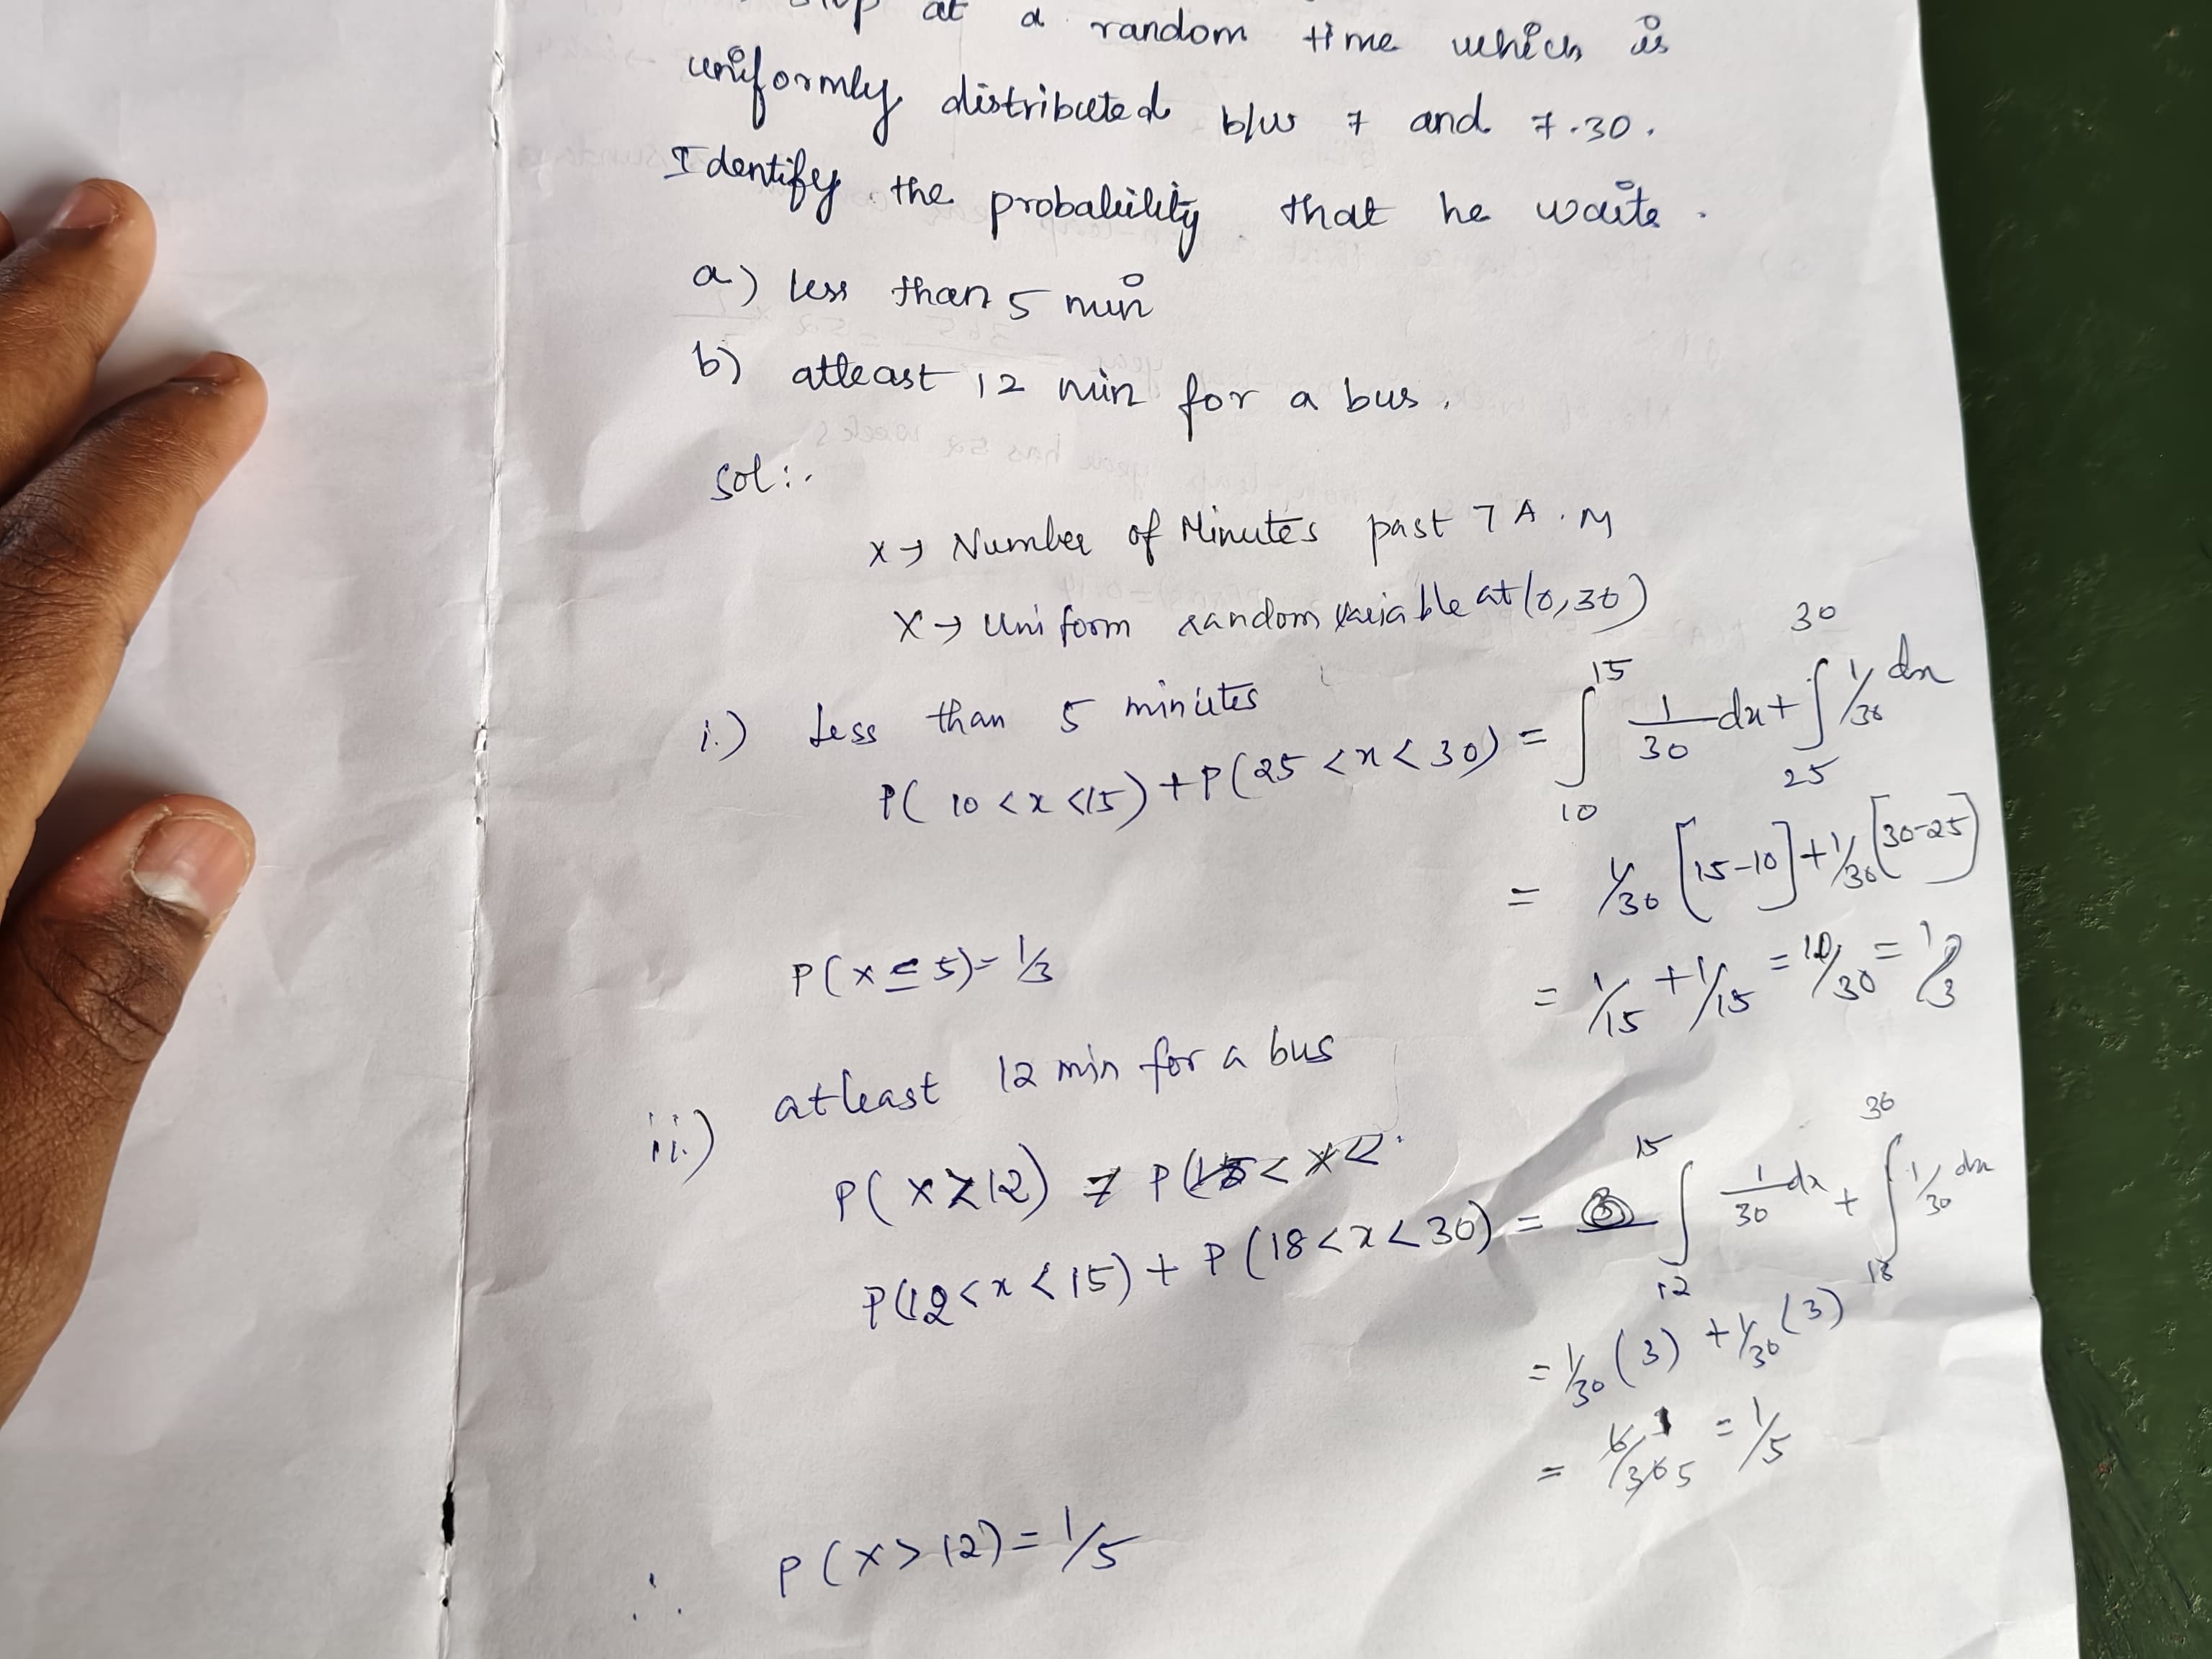 stop at a random time which is
uniformly distributed b/w 7 and 7.30.
Identify the probability that he waits.
a) less than 5 min
b) atleast 12 min for a bus.
Sol:.
x → Number of Minutes past 7 A.M
X → Uniform random variable at (0,30)
i.) Less than 5 minutes
P(10 < x < 15) + P(25 < x < 30) = ∫₁₀¹⁵ 1/30 dx + ∫₂₅³⁰ 1/30 dx
= 1/30 [15-10] + 1/30 [30-25]
P(x ≤ 5) = 1/3
= 1/15 + 1/15 = 10/30 = 1/3
ii.) atleast 12 min for a bus
P(X > 12)
P(12 < x < 15) + P(18 < x < 30) = ∫₁₂¹⁵ 1/30 dx + ∫₁₈³⁰ 1/30 dx
= 1/30 (3) + 1/30 (3)
= 6/30 1 5 = 1/5
∴ P(X > 12) = 1/5